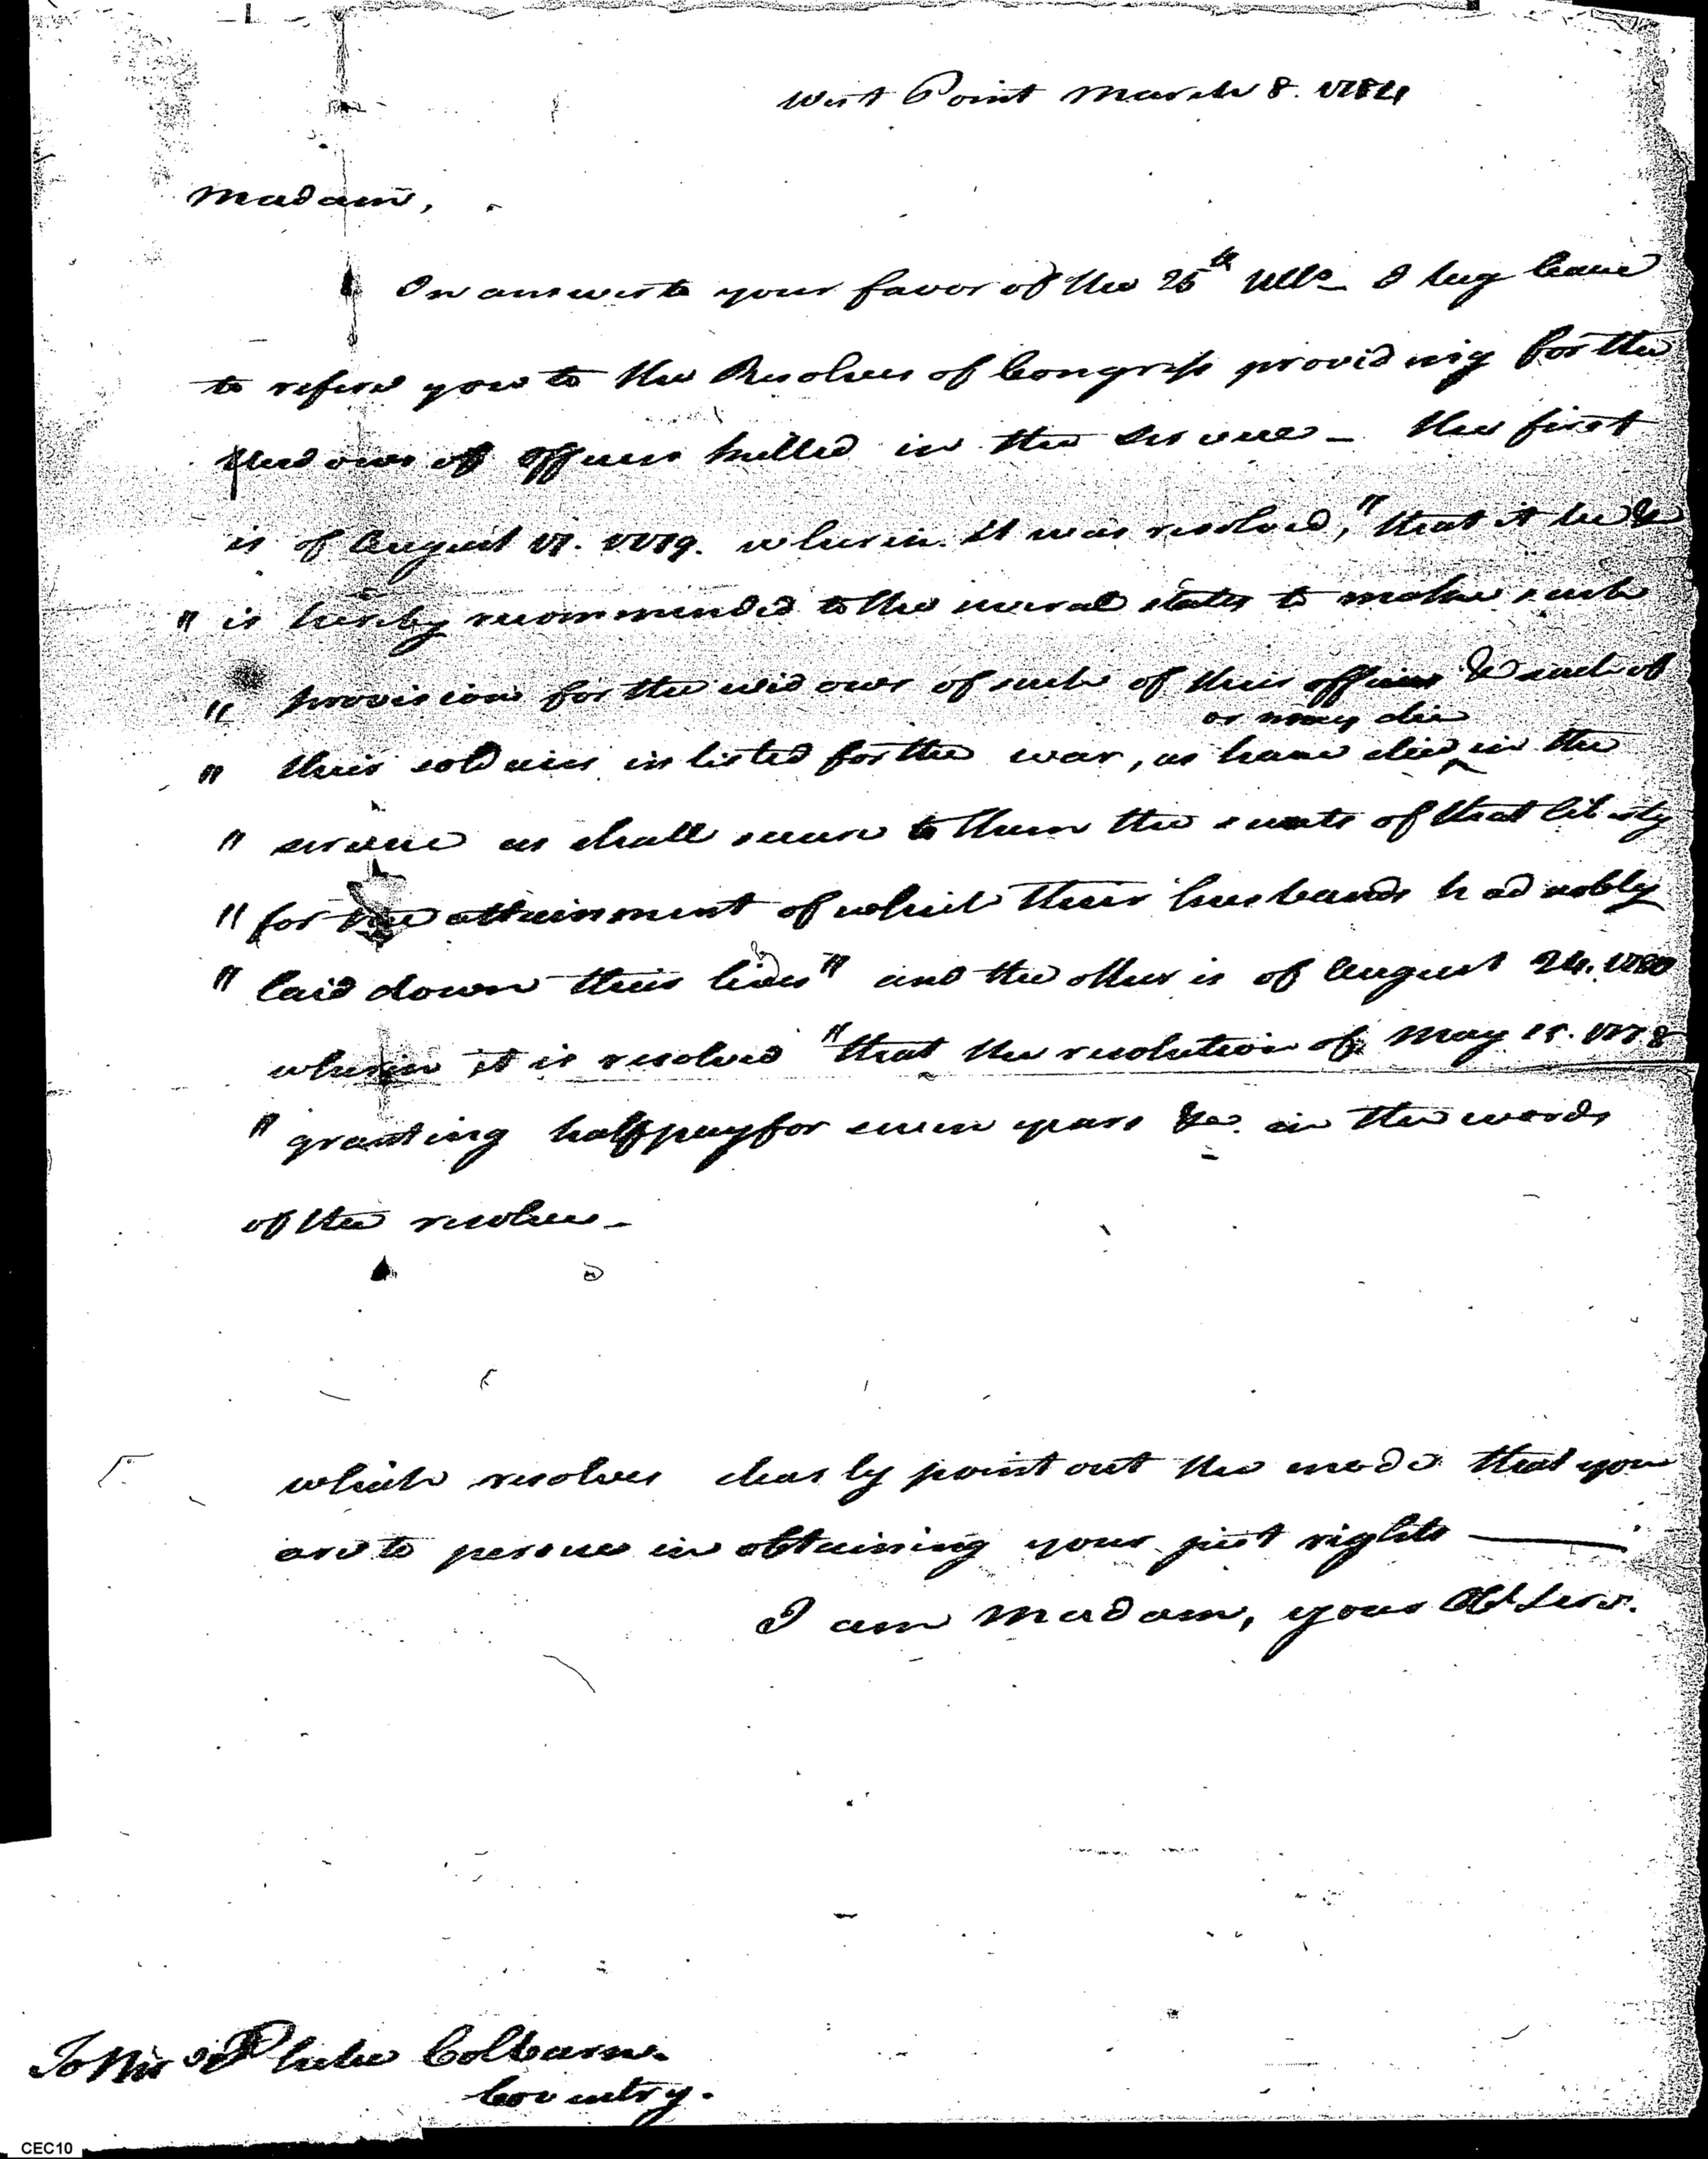 West Point March 8. 1784
Madam,
In answer to your favor of the 25th Ullo_ I beg leave
to refere you to the Resolves of Congress providing for the
Widows of officers killed in the service _ the first
is of August 17. 1779. wherein it was resolved, "that it be &
" is hereby recommended to the several states to make such
" provision for the widows of such of their officers & such of
or may die
" their soldiers inlisted for the war, as have died in the
" service as shall secure to them the sweets of that liberty
" for the attainment of which their husbands had nobly
" laid down their lives" and the other is of August 24. 1780
wherein it is resolved "that the resolution of May 15. 1778
" granting half pay for seven years &c. in the words
of the resolve _
which resolves clearly point out the mode that you
are to persue in obtaining your just rights
I am Madam, your Obt Serv.
To Mrs Phebe Colburn.
Coventry.
CEC10